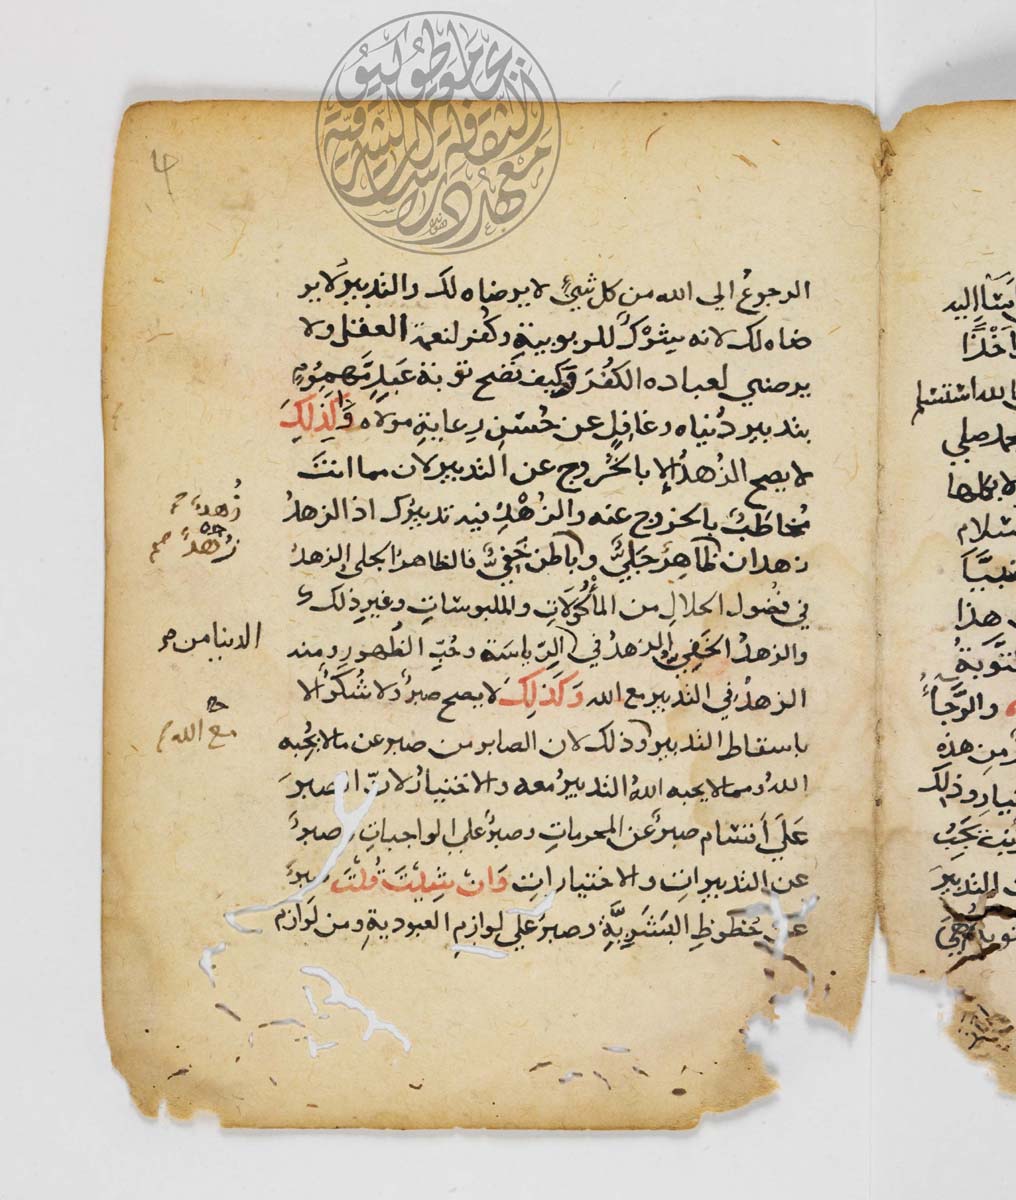 معهد دراسات الثقافة الشرقية بجامعة طوكيو
الرجوعُ الي الله من كل شيءٍ لا يرضاه لك والتدبير لا ير
ضاه لك لانه شِرْكٌ للربوبيةِ وكُفر لنعمة العقل ولا
يرضي لعباده الكفُرَ وكيف تصح توبة عَبدٍ مَّهمومٍ
بتدبير دُنياه وغافِلٍ عن حُسْنِ رِعايةِ مولاه وَكَذٰلِكَ
لا يصح الزُهدُ إلا بالخُروج عن التدبير لان مما انتَ
مُخاطَبٌ بالخروج عنه والزُهْدِ فيه تدبيرُك اذ الزهدُ
زهدان ظاهِرٌ جَلِيٌّ وباطن خَفِيٌّ فالظاهرُ الجلي الزهدُ
في فضُول الحلالِ من المأكُولَاتِ والملبوسَاتِ وغيرِ ذلك
والزهدُ الخَفِيُّ الزهدُ في الرِّياسَة وحُبِّ الظُهورِ ومنه
الزهدُ في التدبير مع الله وَكَذلِكَ لا يصح صبرٌ ولا شُكرٌ الا
باسقاط التدبير وذلك لان الصابر من صبر عن ما لا يُحِبه
اللهُ ومما لا يحبه اللهُ التدبيرُ معه والاختيارُ لانّ الصبرَ
عَلَي اَقسَام صبرٌ عَن المحرماتِ وصبرٌ علي الواجباتِ وصبرٌ
عن التدبيراتِ والاختياراتِ وَان شِيْتَ قُلْتَ صبرٌ
عن حُظوظِ البَشَرِيَّةِ وصبرٌ علي لوازمِ العبوديةِ ومن لَوازم
زُهدٌ
زُهْدٌ صح
الدنيا من
مع الله
شَاَ اليه
الله استسلم
محمد صلي
هذا
التَوبَةُ
والرَّجَاءُ
من هذه
وذلك
يَجِبُ
التدبيرَ